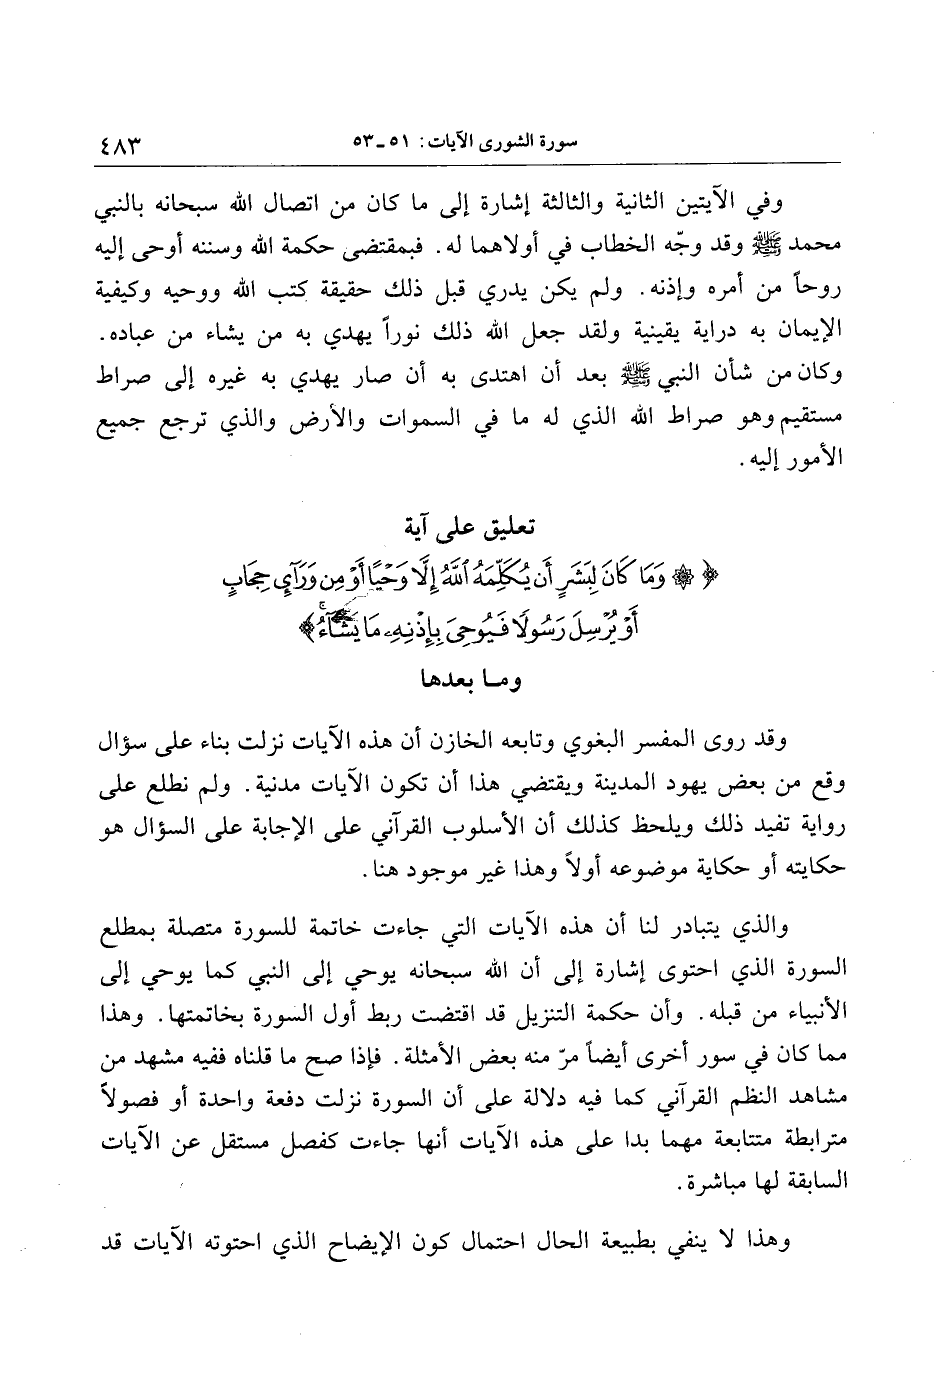 سورة الشورى الآيات: ٥١ ـ ٥٣
٤٨٣
وفي الآيتين الثانية والثالثة إشارة إلى ما كان من اتصال الله سبحانه بالنبي
محمد ﷺ وقد وجّه الخطاب في أولاهما له. فبمقتضى حكمة الله وسننه أوحى إليه
روحاً من أمره وإذنه. ولم يكن يدري قبل ذلك حقيقة كتب الله ووحيه وكيفية
الإيمان به دراية يقينية ولقد جعل الله ذلك نوراً يهدي به من يشاء من عباده.
وكان من شأن النبي ﷺ بعد أن اهتدى به أن صار يهدي به غيره إلى صراط
مستقيم وهو صراط الله الذي له ما في السموات والأرض والذي ترجع جميع
الأمور إليه.
تعليق على آية
﴿ ۞ وَمَا كَانَ لِبَشَرٍ أَن يُكَلِّمَهُ ٱللَّهُ إِلَّا وَحْيًا أَوْ مِن وَرَآيِٕ حِجَابٍ
أَوْ يُرْسِلَ رَسُولًا فَيُوحِيَ بِإِذْنِهِۦ مَا يَشَآءُ ﴾
وما بعدها
وقد روى المفسر البغوي وتابعه الخازن أن هذه الآيات نزلت بناء على سؤال
وقع من بعض يهود المدينة ويقتضي هذا أن تكون الآيات مدنية. ولم نطلع على
رواية تفيد ذلك ويلحظ كذلك أن الأسلوب القرآني على الإجابة على السؤال هو
حكايته أو حكاية موضوعه أولاً وهذا غير موجود هنا.
والذي يتبادر لنا أن هذه الآيات التي جاءت خاتمة للسورة متصلة بمطلع
السورة الذي احتوى إشارة إلى أن الله سبحانه يوحي إلى النبي كما يوحي إلى
الأنبياء من قبله. وأن حكمة التنزيل قد اقتضت ربط أول السورة بخاتمتها. وهذا
مما كان في سور أخرى أيضاً مرّ منه بعض الأمثلة. فإذا صح ما قلناه ففيه مشهد من
مشاهد النظم القرآني كما فيه دلالة على أن السورة نزلت دفعة واحدة أو فصولاً
مترابطة متتابعة مهما بدا على هذه الآيات أنها جاءت كفصل مستقل عن الآيات
السابقة لها مباشرة.
وهذا لا ينفي بطبيعة الحال احتمال كون الإيضاح الذي احتوته الآيات قد